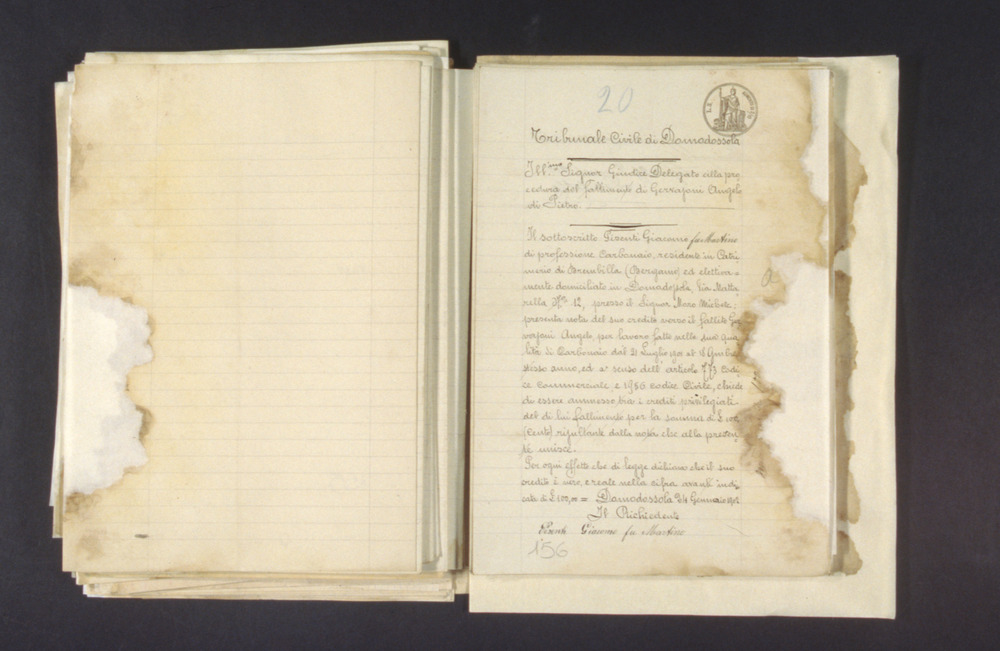 20
Tribunale Civile di Domodossola
Ill.mo Signor Giudice Delegato alla pro
cedura del fallimento di Gerrajoni Angelo
di Pietro.
Il sottoscritto Pizenti Giacomo fu Martino
di professione Carbonaio, residente in Catri
merio di Brembilla (Bergamo) ed elettiva-
mente domiciliato in Domodossola, Via Matta
rella N° 12, presso il Signor Moro Michele;
presenta nota del suo credito verso il fallito Ger
rajoni Angelo, per lavoro fatto nella sua qua
lità di Carbonaio dal 21 Luglio 1900 al 8
stesso anno, ed a senso dell'articolo 773 Codi
ce Commerciale, e 1956 Codice Civile, chiede
di essere ammesso tra i crediti privilegiati
del di lui fallimento per la somma di £ 100
(Cento) risultante dalla nota che alla presen
te unisce.
Per ogni effetto che di legge dichiara che il suo
credito è vero, e reale nella cifra avanti indi
cata di £ 100,00 = Domodossola 24 Gennaio 1901
Il Richiedente
Giacomo fu Martino
156